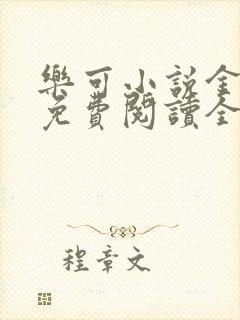 樂可小說全
免費閱讀全
程章文